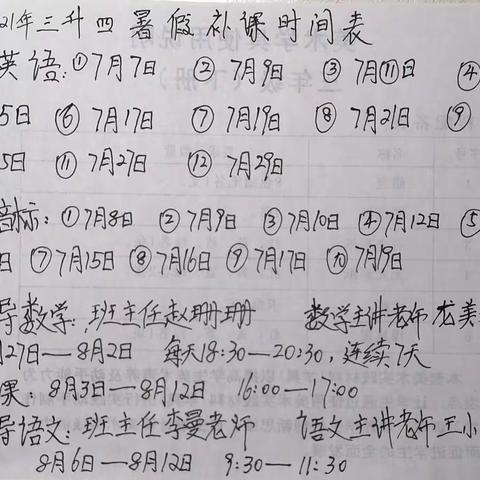 21年三升四暑假补课时间表
英语:①7月7日 ②7月9日 ③7月11日 ④
5日 ⑥7月17日 ⑦7月19日 ⑧7月21日 ⑨
5日 ⑪7月27日 ⑫7月29日
音标:①7月8日 ②7月9日 ③7月10日 ④7月12日 ⑤
日 ⑦7月15日 ⑧7月16日 ⑨7月17日 ⑩7月19日
导数学:班主任赵珊珊 数学主讲老师龙美
月27日—8月2日 每天18:30—20:30,连续7天
课:8月3日—8月12日 16:00—17:00
导语文:班主任李曼老师 语文主讲老师王小
8月6日—8月12日 9:30—11:30